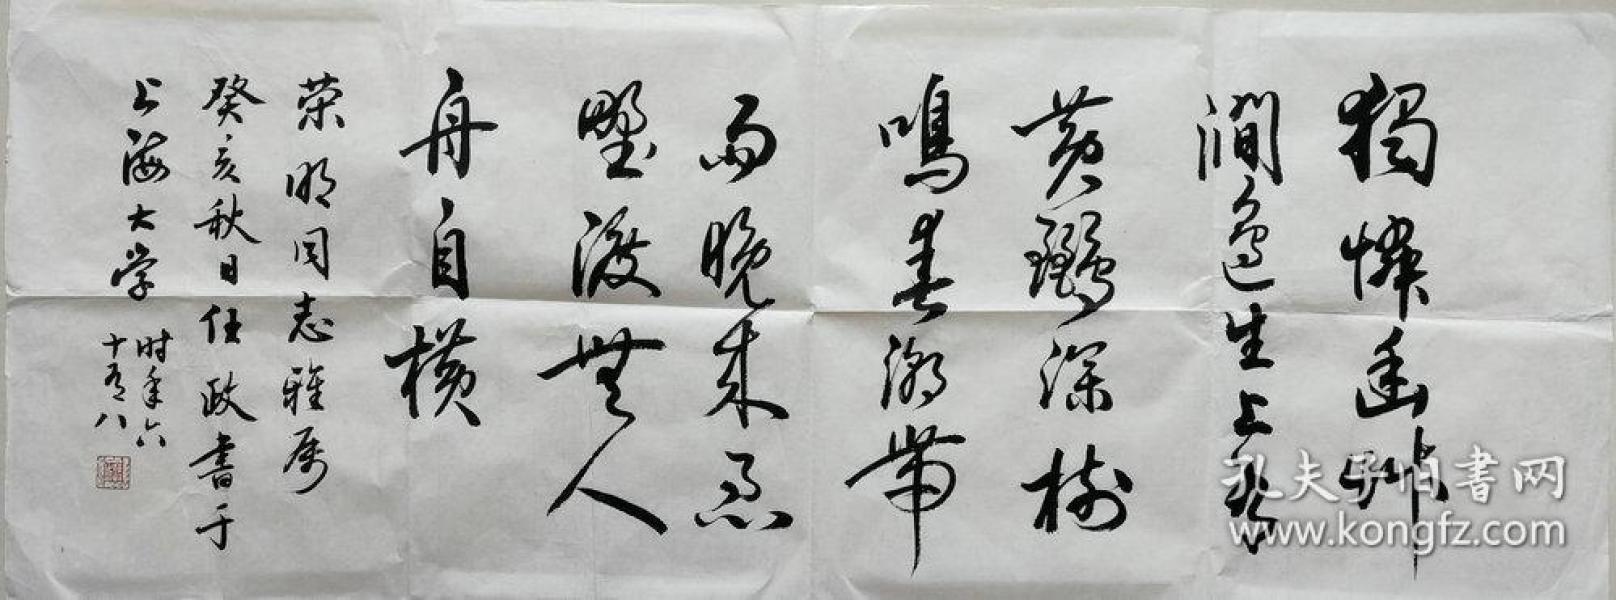 獨憐幽艸
澗邊生上有
黄鸝深樹
鳴春潮帶
雨晚来急
野渡無人
舟自横
荣明同志雅属
癸亥秋日任政書于
上海大学
时年六
十有八
孔夫子旧书网
www.kongfz.com